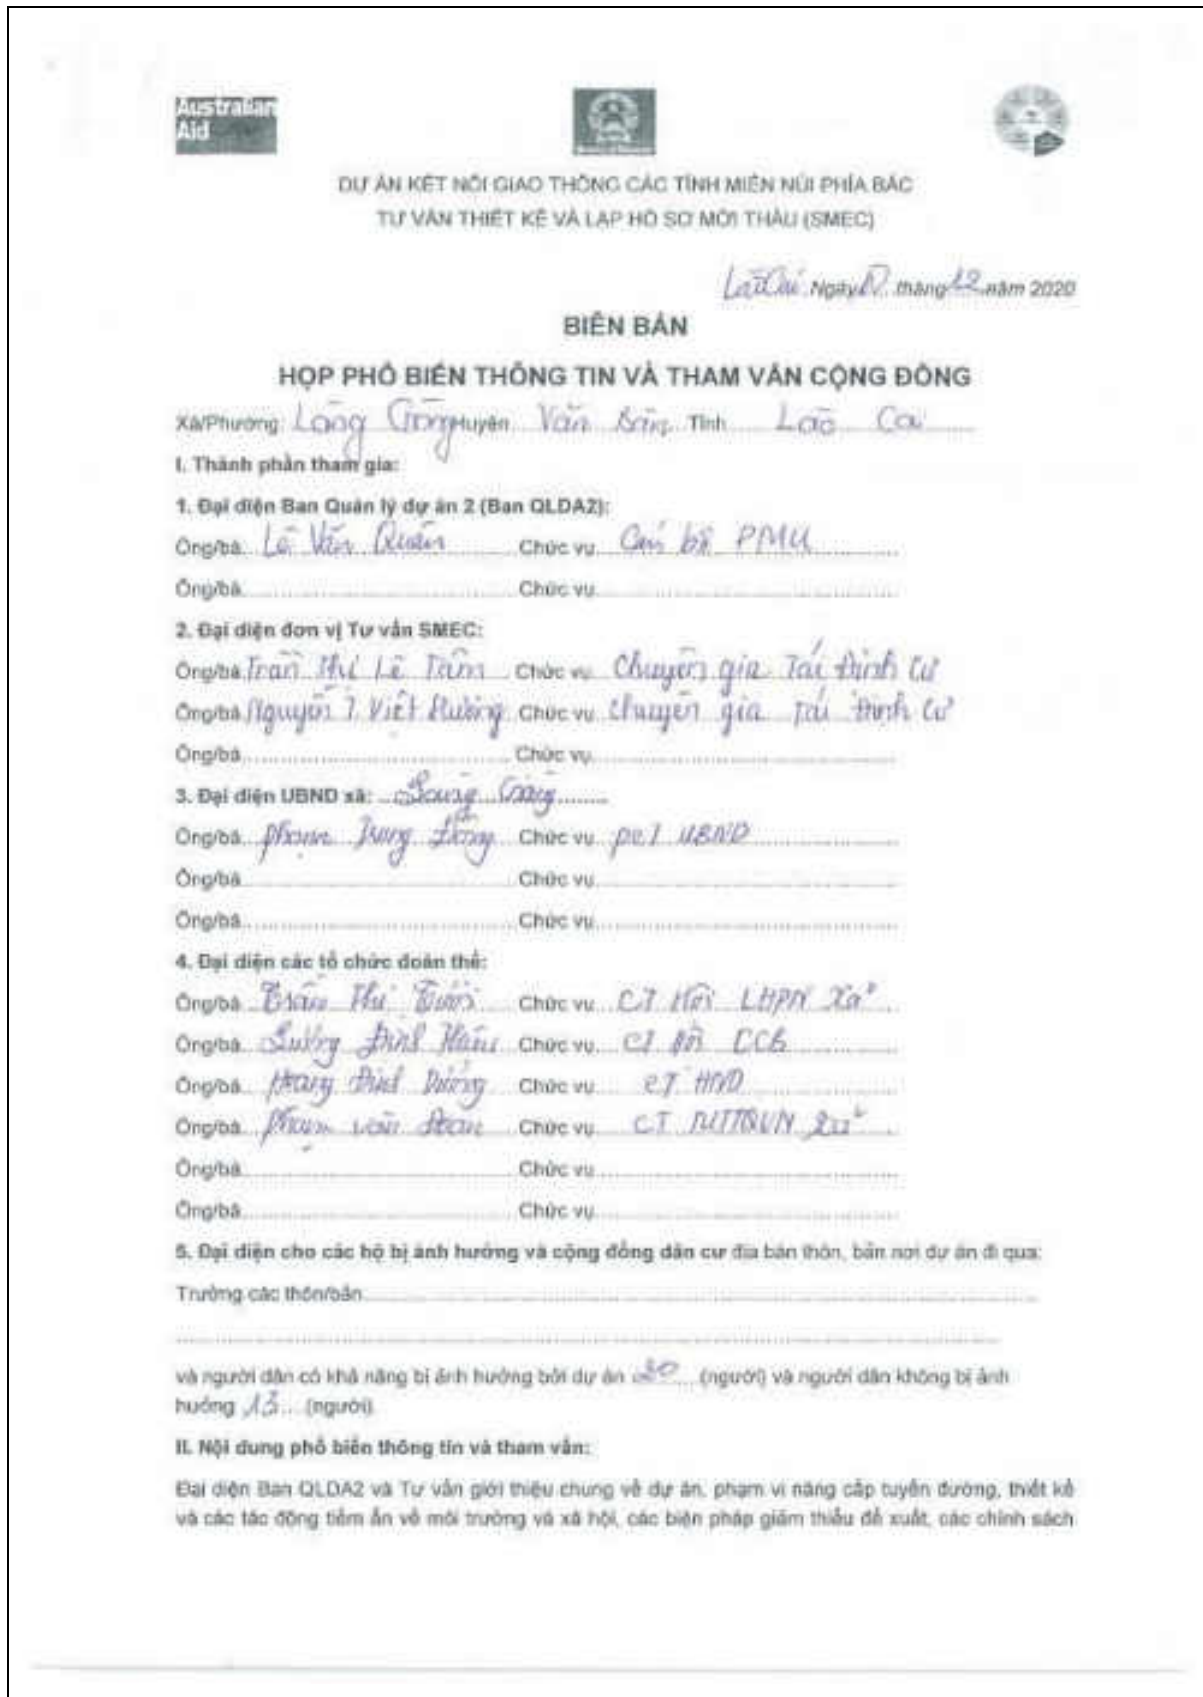 Australian
Aid
DỰ ÁN KẾT NỐI GIAO THÔNG CÁC TỈNH MIỀN NÚI PHÍA BẮC
TƯ VẤN THIẾT KẾ VÀ LẬP HỒ SƠ MỜI THẦU (SMEC)
Lào Cai Ngày tháng 12 năm 2020
BIÊN BẢN
HỌP PHỔ BIẾN THÔNG TIN VÀ THAM VẤN CỘNG ĐỒNG
Xã/Phường: Làng Giàng Huyện Văn Bàn Tỉnh Lào Cai
I. Thành phần tham gia:
1. Đại diện Ban Quản lý dự án 2 (Ban QLDA2):
Ông/bà Lê Văn Quân Chức vụ Cán bộ PMU
Ông/bà Chức vụ
2. Đại diện đơn vị Tư vấn SMEC:
Ông/bà Trần Thị Lê Tâm Chức vụ Chuyên gia Tái Định Cư
Ông/bà Nguyễn T. Việt Hường Chức vụ Chuyên gia Tái Định Cư
Ông/bà Chức vụ
3. Đại diện UBND xã: Làng Giàng
Ông/bà Phạm Trung Chức vụ PCT UBND
Ông/bà Chức vụ
Ông/bà Chức vụ
4. Đại diện các tổ chức đoàn thể:
Ông/bà Trần Thị Chức vụ CT Hội LHPN Xã
Ông/bà Đình Chức vụ CT Hội CCB
Ông/bà Hoàng Đình Chức vụ CT HND
Ông/bà Phạm Văn Chức vụ CT xã
Ông/bà Chức vụ
Ông/bà Chức vụ
5. Đại diện cho các hộ bị ảnh hưởng và cộng đồng dân cư địa bàn thôn, bản nơi dự án đi qua:
Trưởng các thôn/bản
và người dân có khả năng bị ảnh hưởng bởi dự án 20 (người) và người dân không bị ảnh
hưởng 13 (người)
II. Nội dung phổ biến thông tin và tham vấn:
Đại diện Ban QLDA2 và Tư vấn giới thiệu chung về dự án, phạm vi nâng cấp tuyến đường, thiết kế
và các tác động tiềm ẩn về môi trường và xã hội, các biện pháp giảm thiểu đề xuất, các chính sách